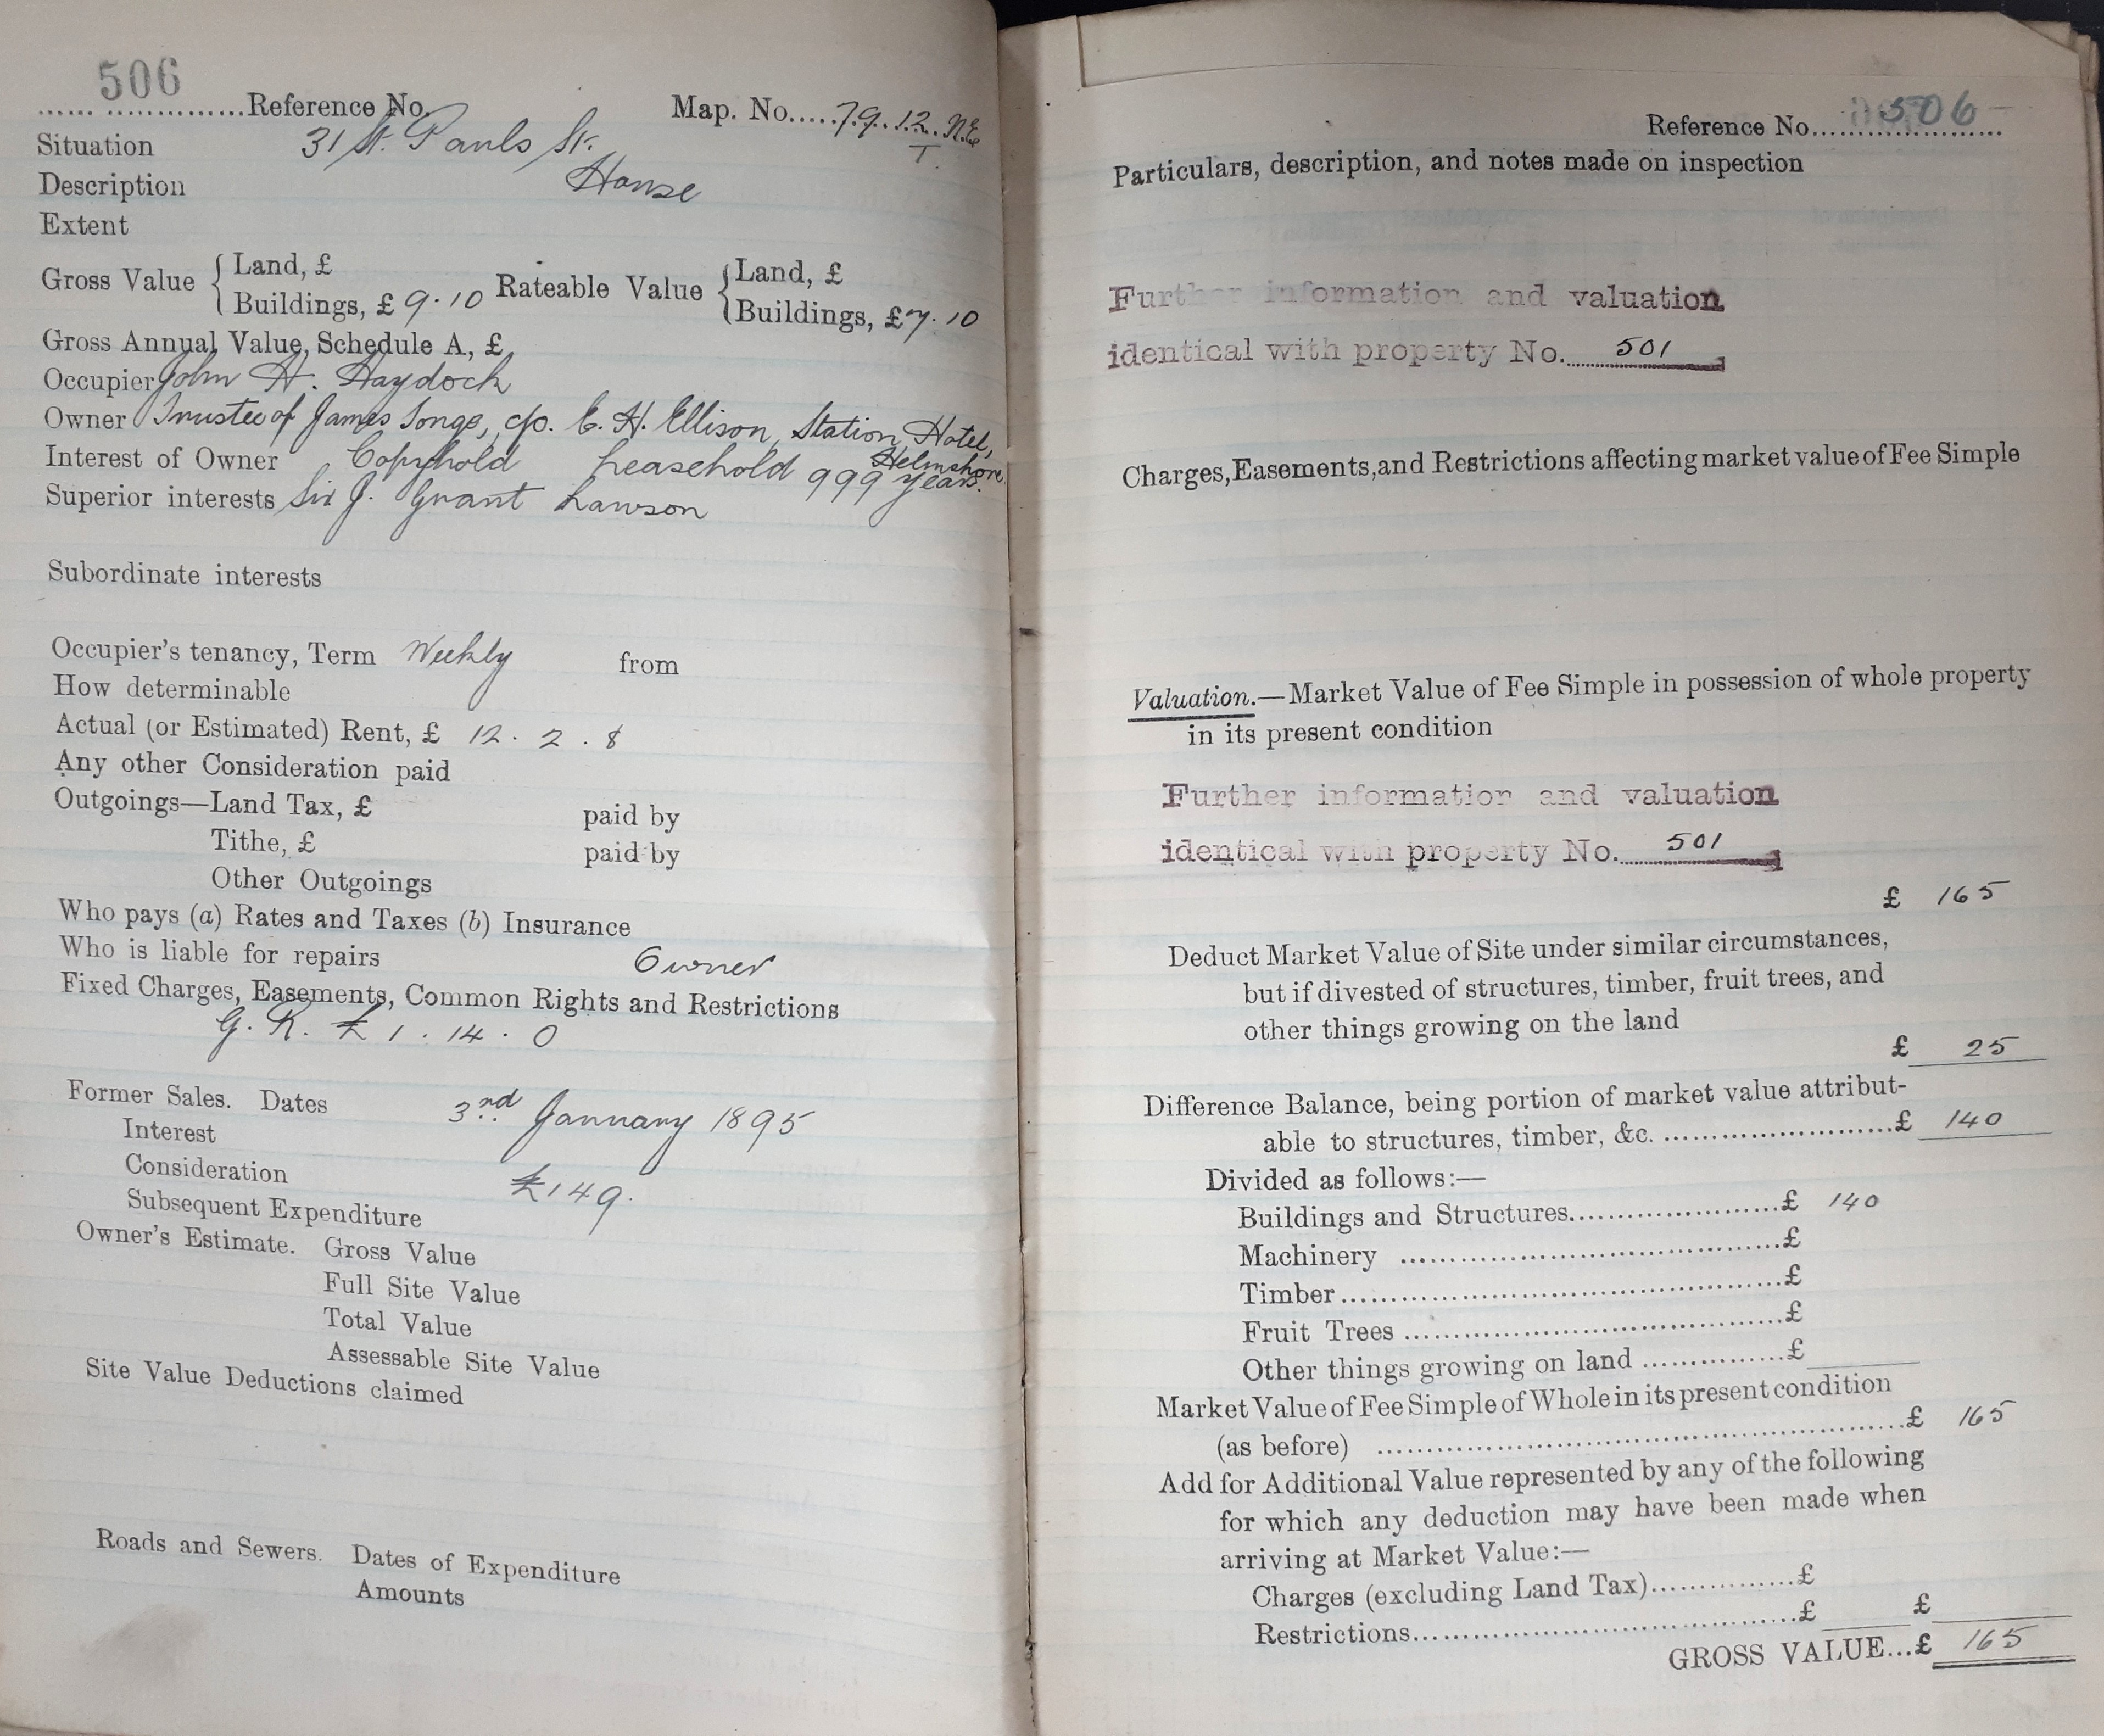 506
Reference No. Map. No. 79.12. N.E.
T.
Situation 31 St. Pauls St.
Description House
Extent
Gross Value { Land, £ Rateable Value { Land, £
Buildings, £ 9.10 Buildings, £ 7.10
Gross Annual Value, Schedule A, £
Occupier John H. Haydock
Owner Trustee of James Songs, c/o. E. H. Ellison, Station Hotel,
Helmshore
Interest of Owner Copyhold Leasehold 999 years.
Superior interests Sir J. Grant Lawson
Subordinate interests
Occupier's tenancy, Term Weekly from
How determinable
Actual (or Estimated) Rent, £ 12. 2. 8
Any other Consideration paid
Outgoings—Land Tax, £ paid by
Tithe, £ paid by
Other Outgoings
Who pays (a) Rates and Taxes (b) Insurance
Who is liable for repairs Owner
Fixed Charges, Easements, Common Rights and Restrictions
G. R. £1. 14. 0
Former Sales. Dates 3rd January 1895
Interest
Consideration £149.
Subsequent Expenditure
Owner's Estimate. Gross Value
Full Site Value
Total Value
Assessable Site Value
Site Value Deductions claimed
Roads and Sewers. Dates of Expenditure
Amounts
Reference No. 506
Particulars, description, and notes made on inspection
Further information and valuation
identical with property No. 501
Charges, Easements, and Restrictions affecting market value of Fee Simple
Valuation.—Market Value of Fee Simple in possession of whole property
in its present condition
Further information and valuation
identical with property No. 501
£ 165
Deduct Market Value of Site under similar circumstances,
but if divested of structures, timber, fruit trees, and
other things growing on the land
£ 25
Difference Balance, being portion of market value attribut-
able to structures, timber, &c. £ 140
Divided as follows:—
Buildings and Structures £ 140
Machinery £
Timber £
Fruit Trees £
Other things growing on land £
Market Value of Fee Simple of Whole in its present condition
(as before) £ 165
Add for Additional Value represented by any of the following
for which any deduction may have been made when
arriving at Market Value:—
Charges (excluding Land Tax) £
Restrictions £ £
GROSS VALUE...£ 165